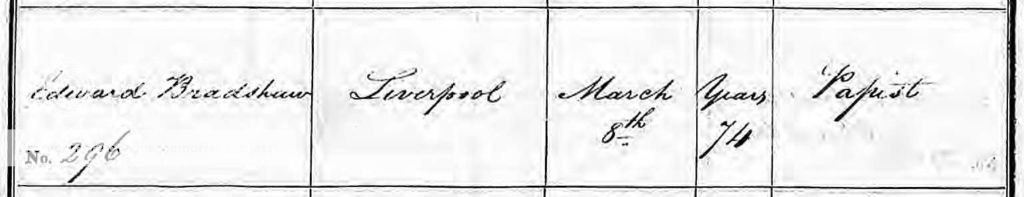 Edward Bradshaw Liverpool March Years Papist
8th 74
No. 296